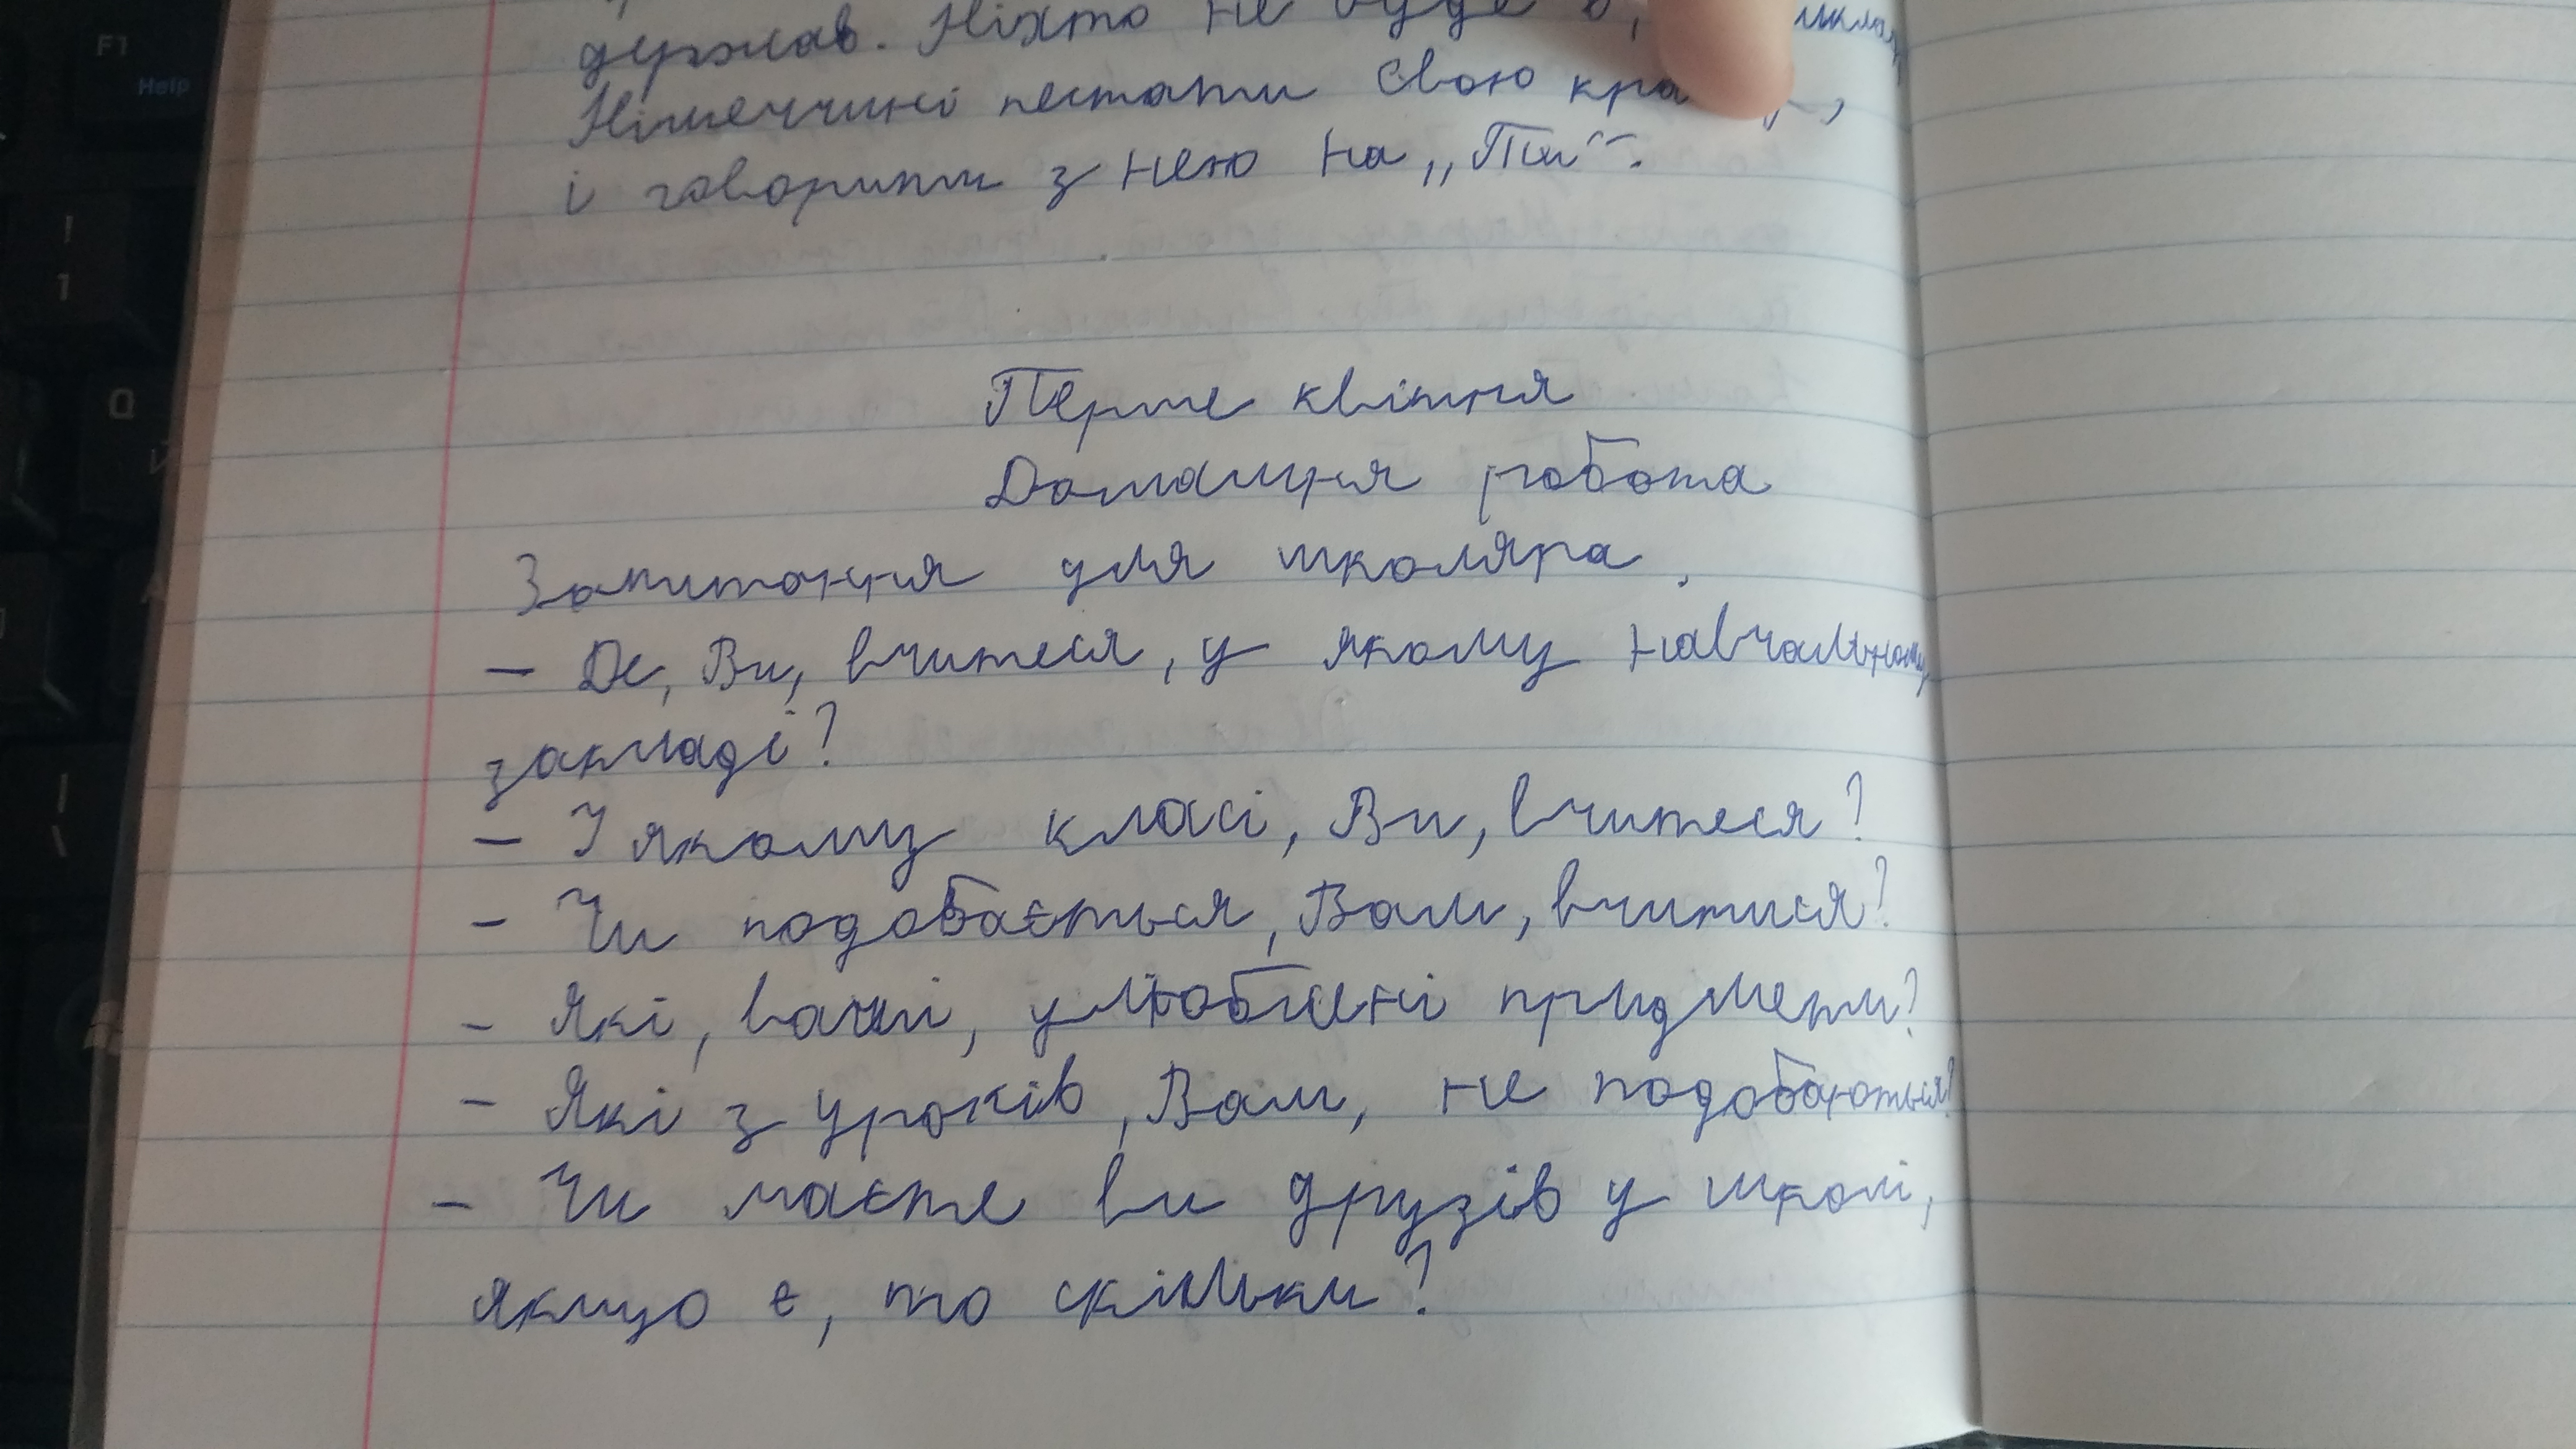 держав. Ніхто не буде в,
Німеччині пестати свою
і говорити з нею на „Ти“.
Перше квітня
Домашня робота
Запитання для школяра.
– Де, Ви, вчитеся, у якому навчальному
закладі?
– У якому класі, Ви, вчитеся?
– Чи подобається, Вам, вчитися?
– Які, ваши, улюблені придмети?
– Які з уроків, Вам, не подобаються?
– Чи маєте ви друзів у школі,
якщо є, то скільки?